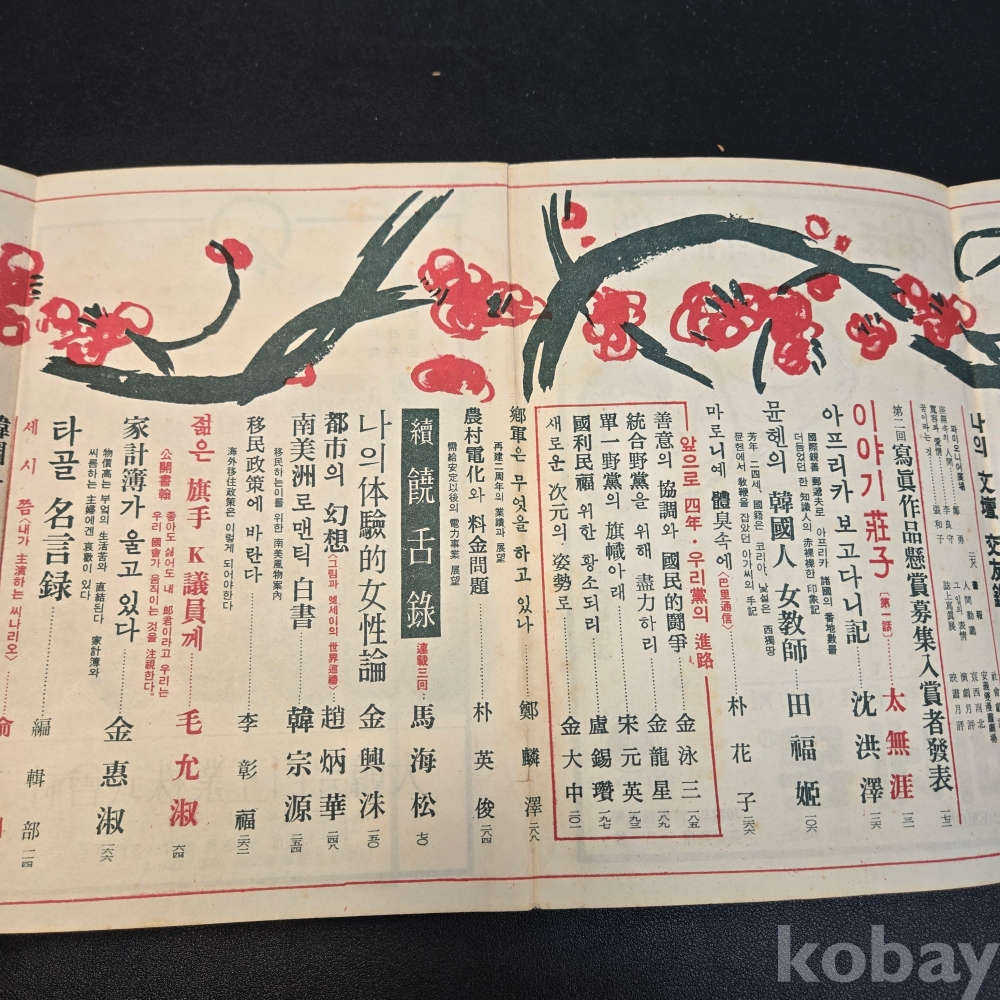 나의 文壇 交友錄
第二回 寫眞作品懸賞募集入賞者發表 一七二
이야기 莊子 〔第一話〕 太無涯 一三二
아프리카 보고다니記 沈洪澤 二六
國際親善 郵遞夫로 아프리카 諸國의 番地數를
더듬었던 한 知識人의 赤裸裸한 印象記
뮨헨의 韓國人 女教師 田福姬 一〇六
芳年 二四세, 國籍은 코리아, 낯설은 西獨땅
뮨헨에서 敎鞭을 잡았던 아가씨의 手記
마로니에 體臭속에 〈巴里通信〉 朴花子 二六六
앞으로 四年・우리黨의 進路
善意의 協調와 國民的鬪爭 金泳三 一八五
統合野黨을 위해 盡力하리 金龍星 一八九
單一野黨의 旗幟아래 宋元英 一九三
國利民福 위한 황소되리 盧錫瓚 一九七
새로운 次元의 姿勢로 金大中 二〇一
鄕軍은 무엇을 하고 있나 鄭麟澤 二八八
再建二周年의 業績과 展望
農村電化와 料金問題 朴英俊 二六四
需給安定以後의 電力事業 展望
續 饒舌錄 連載三回 馬海松 七〇
나의体驗的女性論 金興洙 一五〇
都市의 幻想 〈그림과 엣세이의 世界巡禮〉 趙炳華 二四八
南美洲로맨틱白書 韓宗源 二五四
移民하는이를 위한 南美風物案內
移民政策에 바란다 李彰福 二六二
海外移住政策은 이렇게 되어야한다
젊은 旗手 K議員께 毛允淑 六四
公開書翰 좋아도 싫어도 내 郎君이라고 우리는
우리 國會가 움직이는 것을 注視한다.
家計簿가 울고 있다 金惠淑 一六六
物價高는 부엌의 生活苦와 直結된다 家計簿와
씨름하는 主婦에겐 哀歡이 있다
타골 名言録 編輯部 一一四
세 시 쯤 〈내가 主演하는 씨나리오〉
kobay